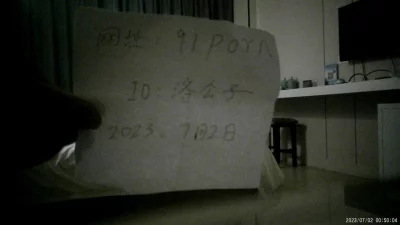 网址:91porn
ID:洛公子
2023.7月2日
2023/07/02 00:50:04